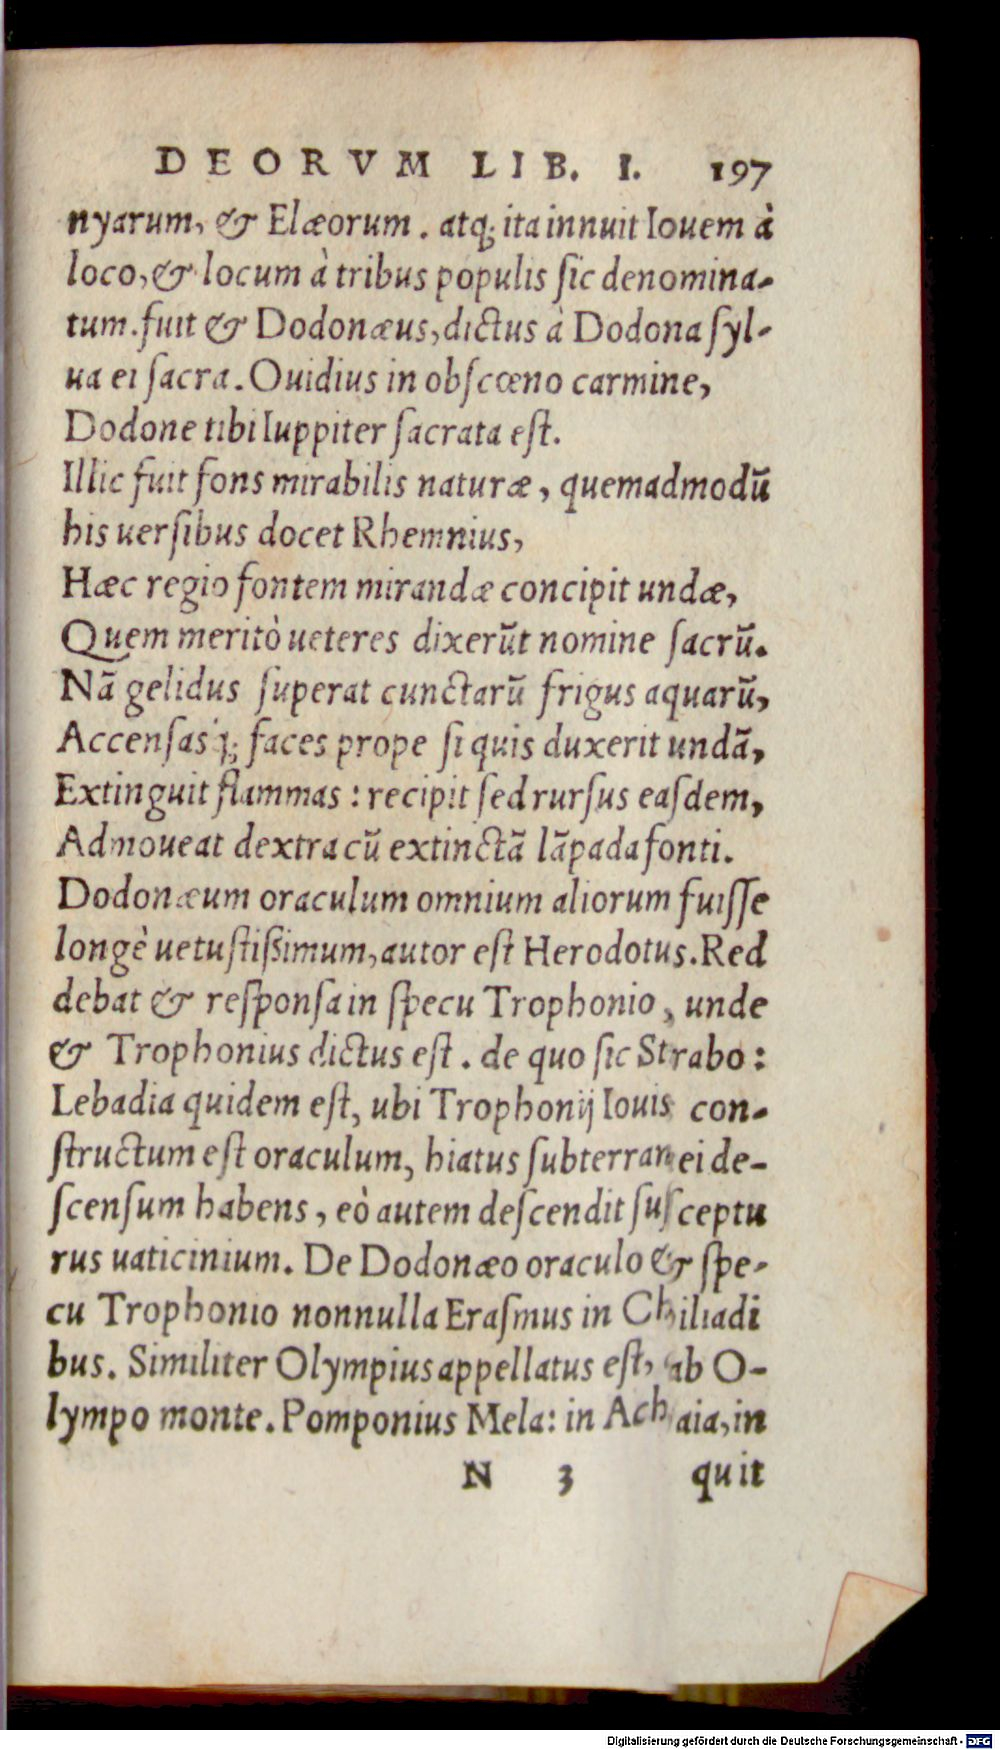 DEORVM LIB. I. 197
nyarum, & Elæorum. atq; ita innuit Iouem à
loco, & locum à tribus populis ſic denomina-
tum. fuit & Dodonæus, dictus à Dodona ſyl-
ua ei ſacra. Ouidius in obſcœno carmine,
Dodone tibi Iuppiter ſacrata eſt.
Illic fuit fons mirabilis naturæ, quemadmodū
his uerſibus docet Rhemnius,
Hæc regio fontem mirandæ concipit undæ,
Quem meritò ueteres dixerūt nomine ſacrū.
Nā gelidus ſuperat cunctarū frigus aquarū,
Accenſasq́; faces prope ſi quis duxerit undā,
Extinguit flammas: recipit ſed rurſus eaſdem,
Admoueat dextra cū extinctā lāpada fonti.
Dodonæum oraculum omnium aliorum fuiſſe
longè uetuſtißimum, autor eſt Herodotus. Red
debat & reſponſa in ſpecu Trophonio, unde
& Trophonius dictus eſt. de quo ſic Strabo:
Lebadia quidem eſt, ubi Trophonij Iouis con-
ſtructum eſt oraculum, hiatus ſubterranei de-
ſcenſum habens, eò autem deſcendit ſuſceptu
rus uaticinium. De Dodonæo oraculo & ſpe-
cu Trophonio nonnulla Eraſmus in Chiliadi
bus. Similiter Olympius appellatus eſt, ab O-
lympo monte. Pomponius Mela: in Achaia, in
N 3 quit
Digitalisierung gefördert durch die Deutsche Forschungsgemeinschaft - DFG